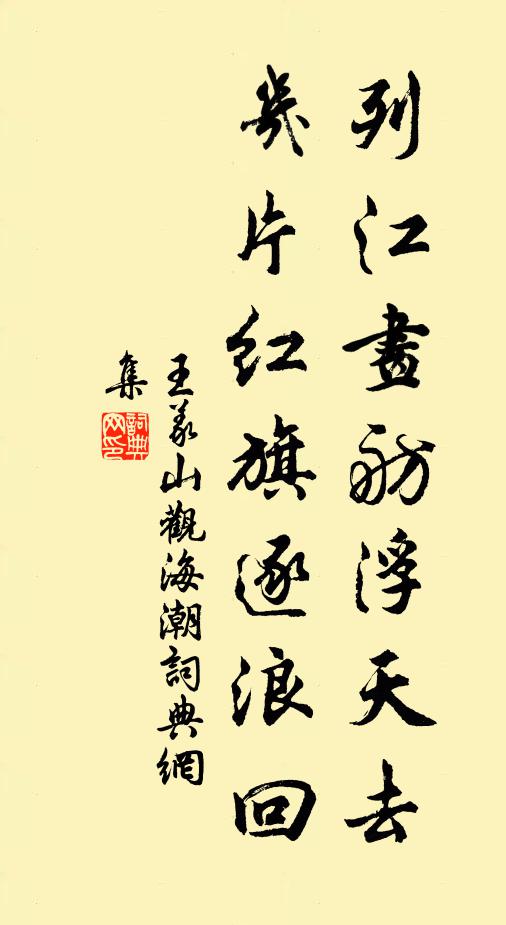 列江畫舫浮天去
幾片紅旗逐浪回
王義山觀海潮詞典網
集
詞典
网印